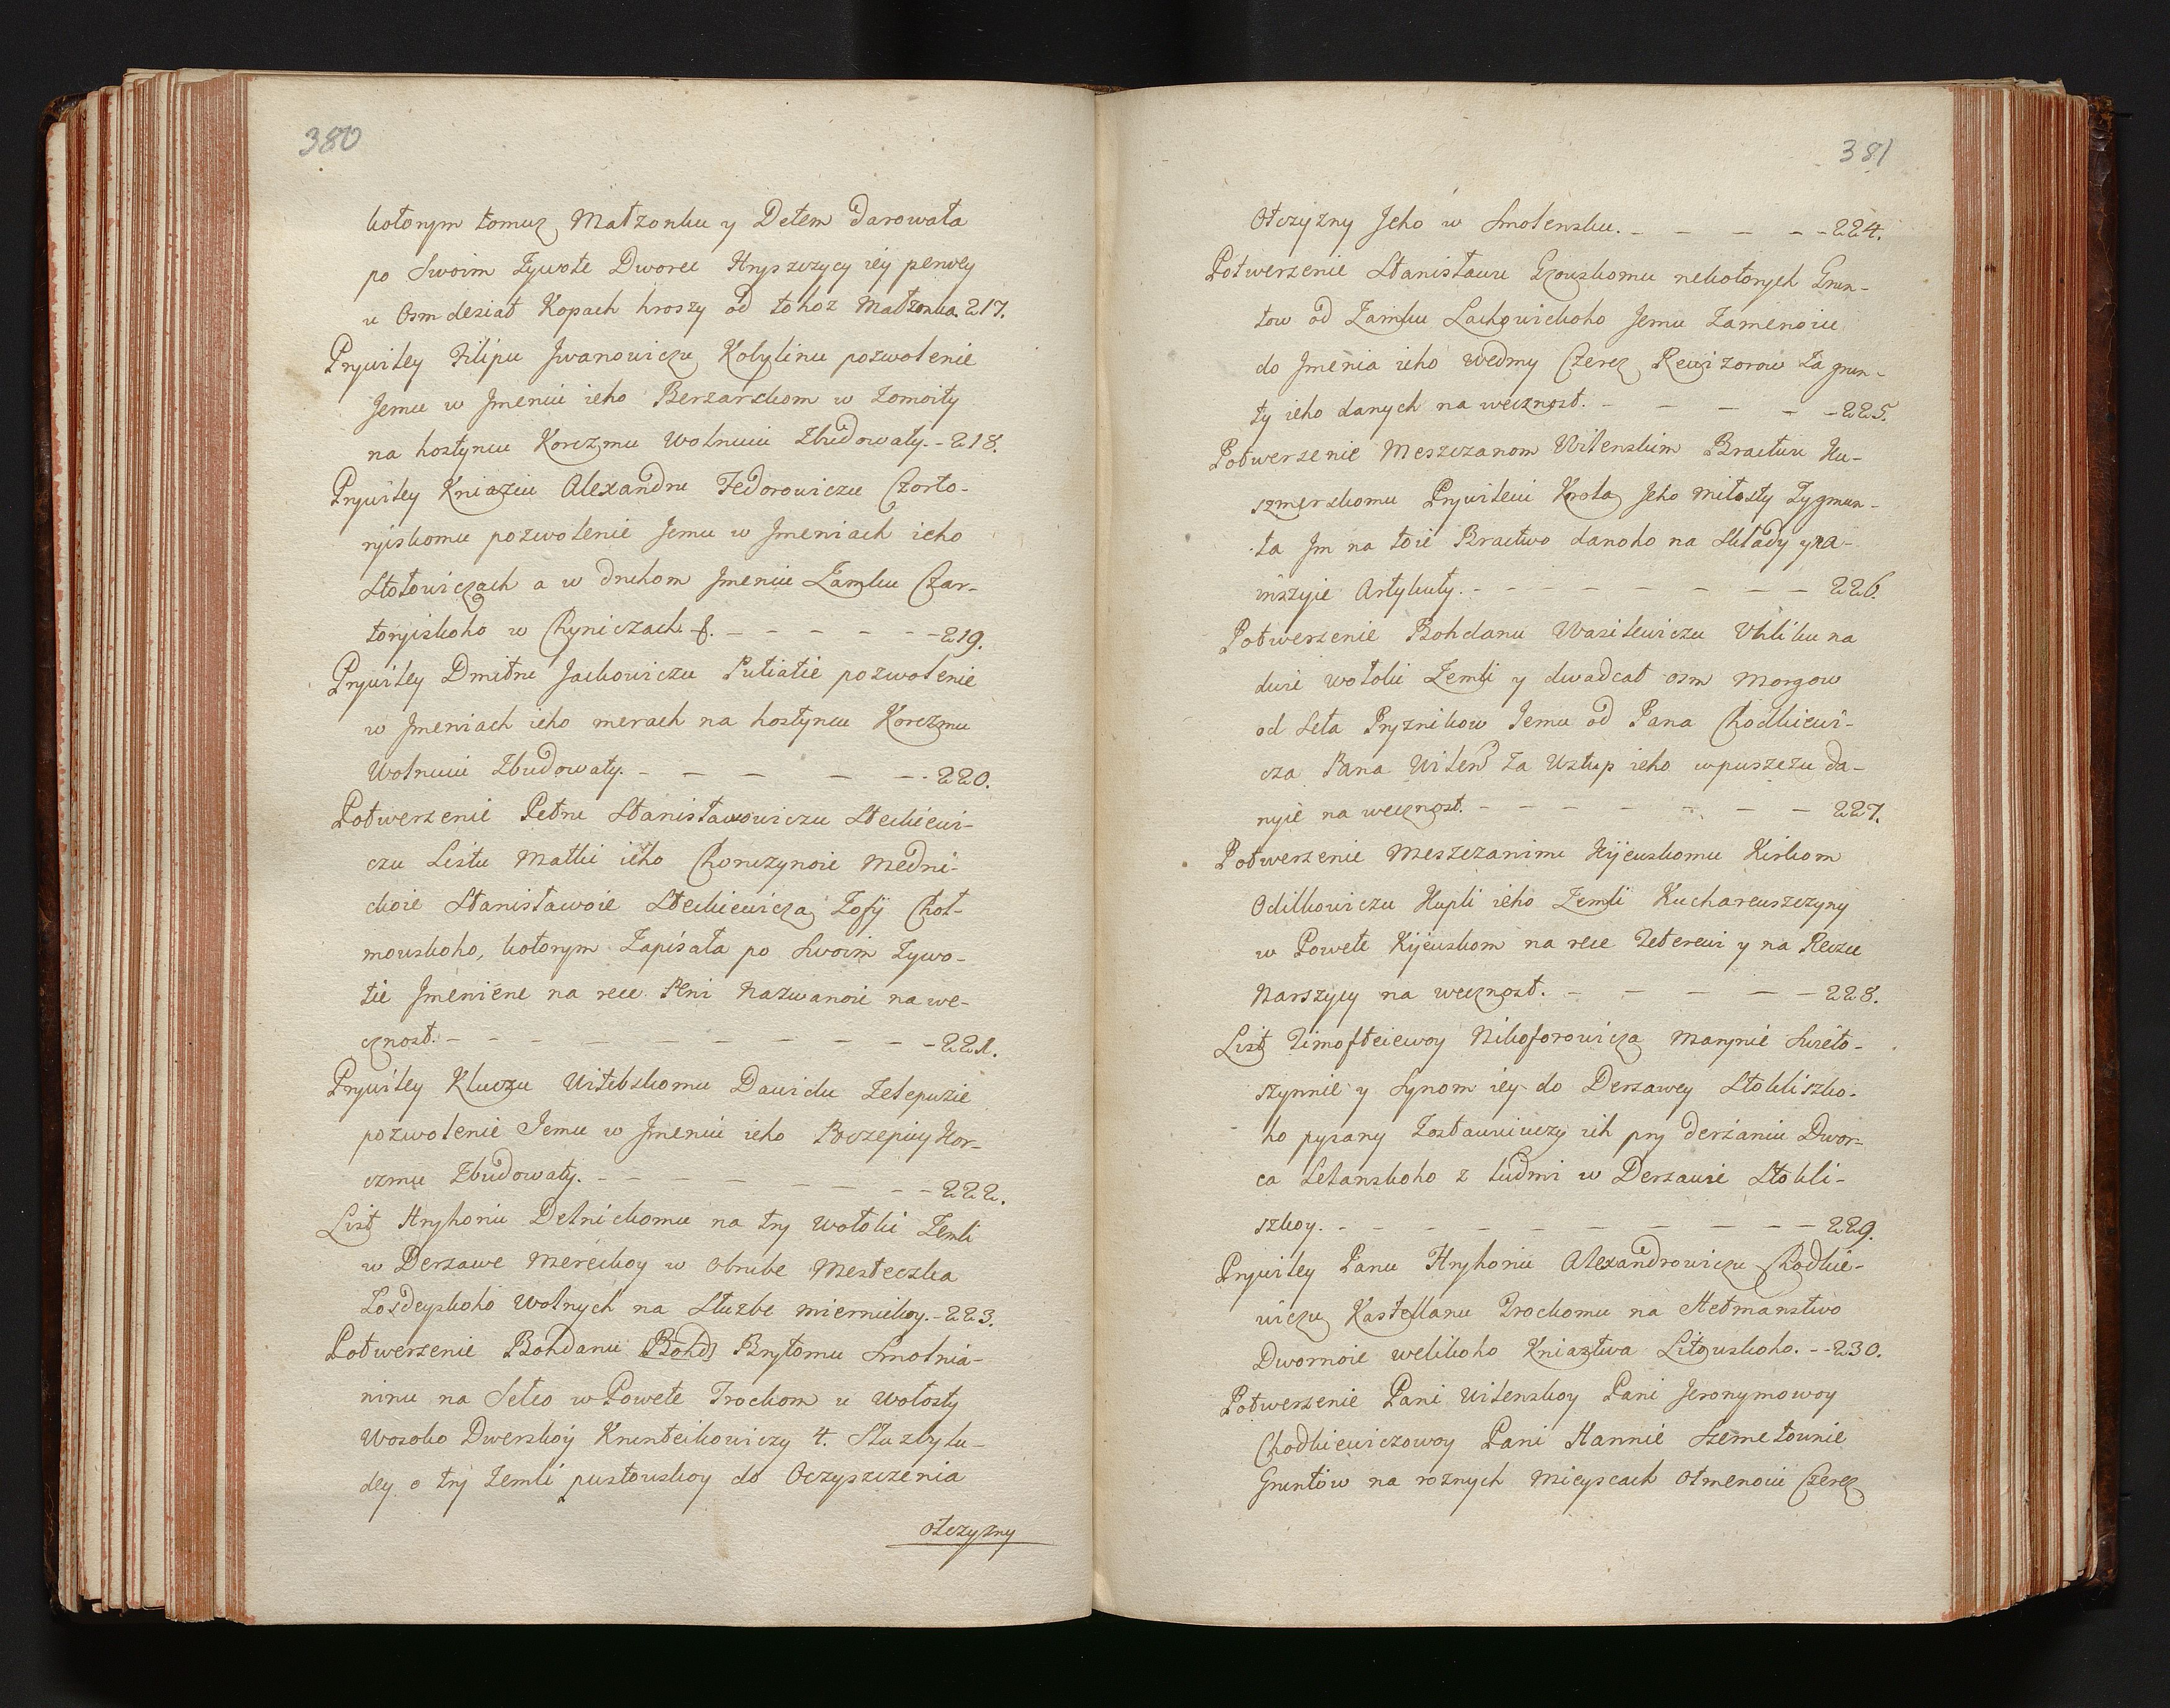 380
kotorym tomuz Małzonku y Detem darowała
po Swoim Zywote Dworec Hryszczycy iey perwey
u Osmdesiat Kopach hroszy od tohoz Małzonka. 217.
Prywiley Filipu Jwanowiczu Kobylinu pozwolenie
Jemu w Jmeniu ieho Berzanskom w Zomoity
na hostyncu Korczmu Wolnuiu Zbudowaty. - 218.
Prywiley Kniaziu Alexandru Fedorowiczu Czorto-
ryiskomu pozwolenie Jemu w Jmeniach ieho
Stołowiczach a w druhom Jmeniu Zamku Czar-
toryiskoho w Chyniczach. - - - - - - 219.
Prywiley Dmitru Jackowiczu Putiatie pozwolenie
w Jmeniach ieho merach na hostyncu Korczmu
Wolnuiu Zbudowaty. - - - - - - 220.
Potwerzenie Petru Stanisławowiczu Steckiewi-
czu Listu Matki ieho Choruzynoie Medni-
ckoie Stanisławoie Steckiewicza Zofij Choł-
mouskoho, kotorym Zapisała po Swoim Zywo-
tie Jmeniene na rece Peni Nazwanoie na we-
cznost. - - - - - - - - - - 221.
Prywiley Kluczu Witebskomu Dawidu Zelepuzie
pozwolenie Jemu w Jmeniu ieho Poczepicy Kor-
czmu Zbudowaty. - - - - - - - - 222.
List Hryhoriu Delnickomu na try wołoki Zemli
w Derzawe Mereckoy w obrube Mesteczka
Łozdeyskoho Wolnych na Służbe miernickoy. - 223.
Potwerzenie Bohdanu [Bohd] Brytomu Smolnia-
ninu na Seło w Powete Trockom u Wołosty
Wosoko Dwerskoy Krunteikowiczy 4. Służby lu-
dey o try Zemli pustouskoy do Oczyszczenia
otczyzny
381
Otczyzny Jeho w Smolensku. - - - - - 224.
Potwerzenie Stanisławu Gzouskomu nekotorych Grun-
tow od Zamku Lachowickoho Jemu Zamenoiu
do Jmenia ieho Wedmy Czerez Rewizorow Za grun-
ty ieho danych na wecznost. - - - - - 225.
Potwerzenie Meszczanom Wilenskim Bractwu Ku-
szmerskomu Prywileiu Krola Jeho miłosty Zygmun-
ta Jm na toie Bractwo danoho na Składy y na-
inszyie Artykuły. - - - - - - - - 226.
Potwerzenie Bohdanu Wasilewiczu Uhliku na
dwie wołoki Zemli y dwadcat osm Morgow
od Seła Pryznikow Jemu od Pana Chodkiewi-
cza Pana Wilen Za Wstup ieho w puszczu da-
nyie na wecznost. - - - - - - - 227.
Potwerzenie Meszczaninu Kijeuskomu Kirkom
Odilkowiczu Kupli ieho Zemli Kuchareuszczyny
w Powete Kijeuskom na rece Teterewi y na Reczce
Narszycy na wecznost. - - - - - - 228.
List Timofteiewoy Nikoforowicza Marynie Swieto-
szynnie y Synom iey do Derzawcy Stokliszko-
ho pysany Zostawuiuczy ich pry derżaniu Dwor-
ca Selanskoho z ludmi w Derzawie Stokli-
szkoy. - - - - - - - - - - 229.
Prywiley Panu Hryhoriu Alexandrowiczu Chodkie-
wiczu Kastellanu Trockomu na Hetmanstwo
Dwornoie welikoho Kniaztwa Litouskoho. - - 230.
Potwerzenie Pani Wilenskoy Pani Jeronymowoy
Chodkiewiczowoy Pani Hannie Szemetounie
Gruntów na roznych Mieyscach Otmenoiu Czerez